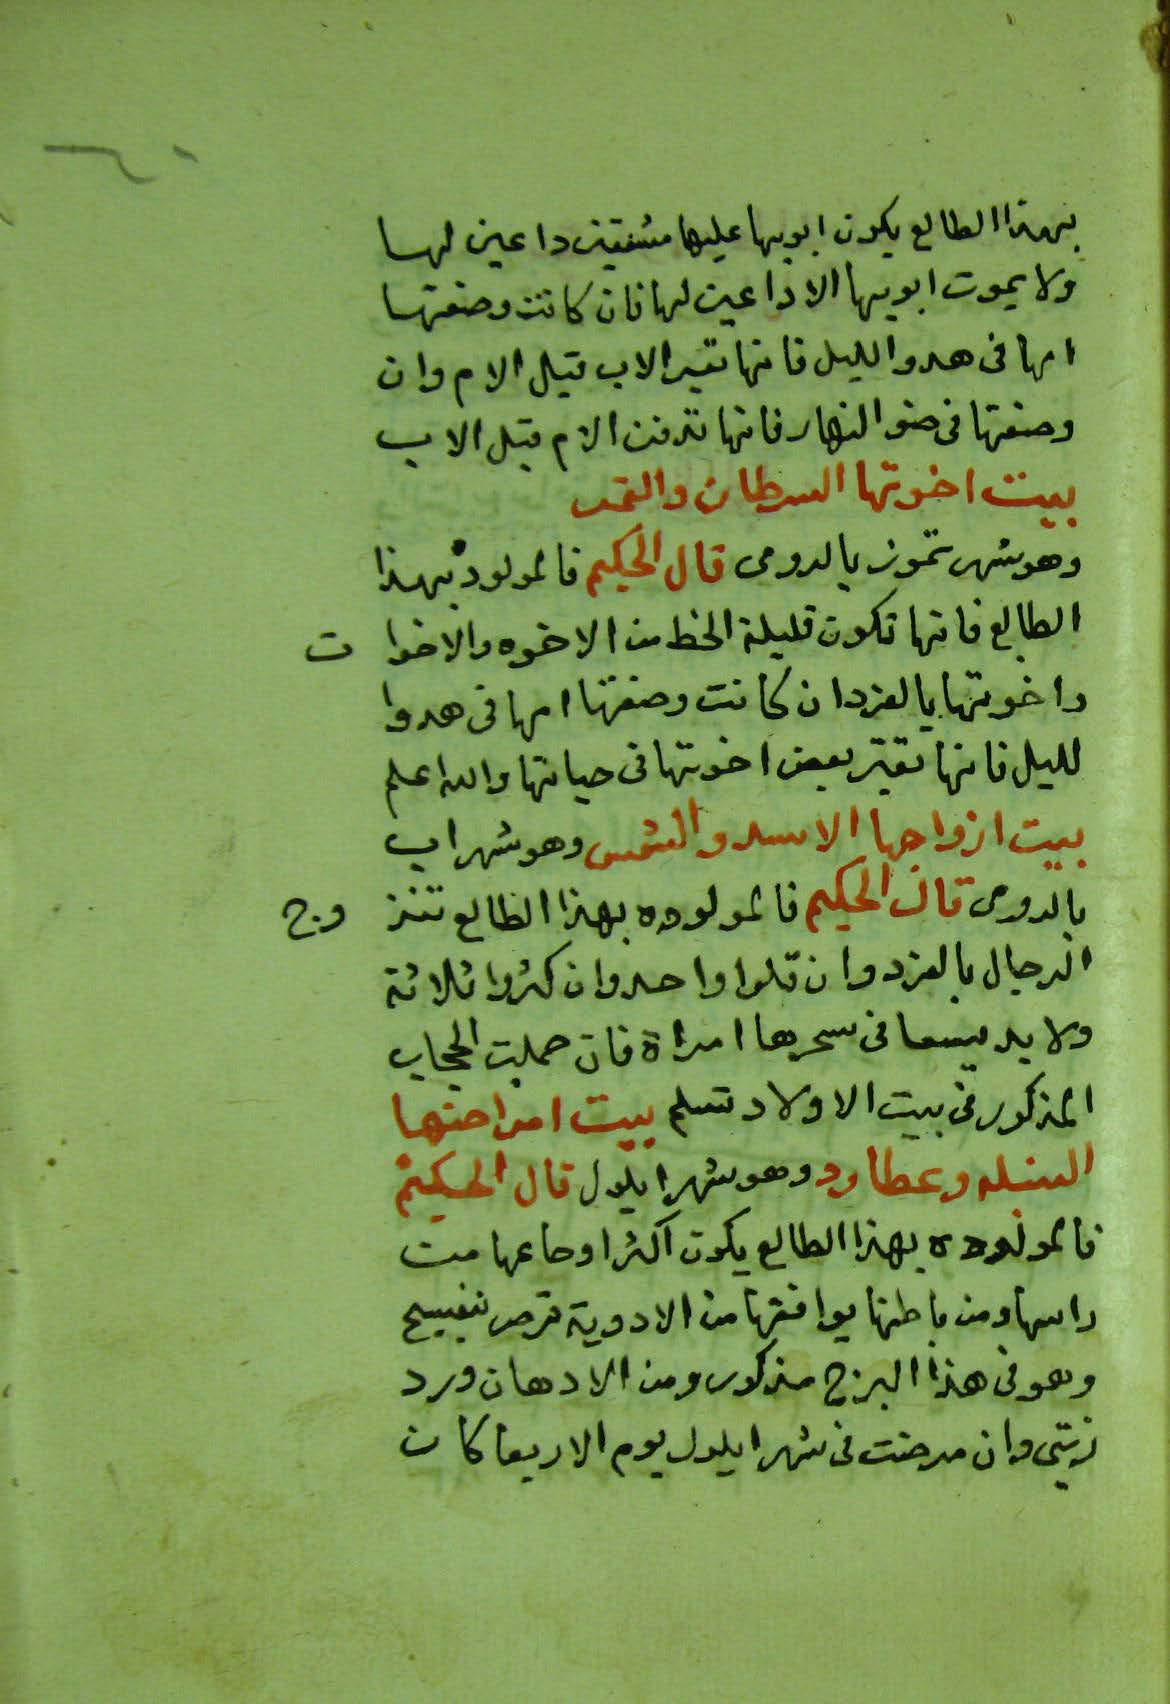 بهذا الطالع يكون ابويها عليها مشفقين داعين لها
ولا يموت ابويها الا داعين لها فان كانت وضعتها
امها فى هدوا لليل فانها تقبر الاب قبل الام وان
وضعتها فى ضو النهار فانها تدفن الام قبل الاب
بيت اخوتها السرطان والقمر
وهو شهر تموز بالرومى قال الحكيم فالمولود بهذا
الطالع فانها تكون قليلة الحظ من الاخوه والاخوا ت
واخوتها بالفرد ان كانت وضعتها امها فى هدوا
لليل فانها تقبر بعض اخوتها فى حياتها والله اعلم
بيت ازواجها الاسد والشمس وهو شهر اب
بالرومى قال الحكيم فالمولوده بهذا الطالع تتز وج
الرجال بالفرد وان قلوا واحد وان كثروا ثلاثة
ولا بد يسعا فى سحرها امراة فان حملت الحجاب
المذكور فى بيت الاولاد تسلم بيت امراضها
السنبله وعطارد وهو شهر ايلول قال الحكيم
فالمولوده بهذا الطالع يكون اكثر اوجاعها من
راسها ومن باطنها يوافقها من الادوية قرص بنفسج
وهو فى هذا البرج مذكور ومن الادهان ورد
زيتى وان مرضت فى شهر ايلول يوم الاربعا كان